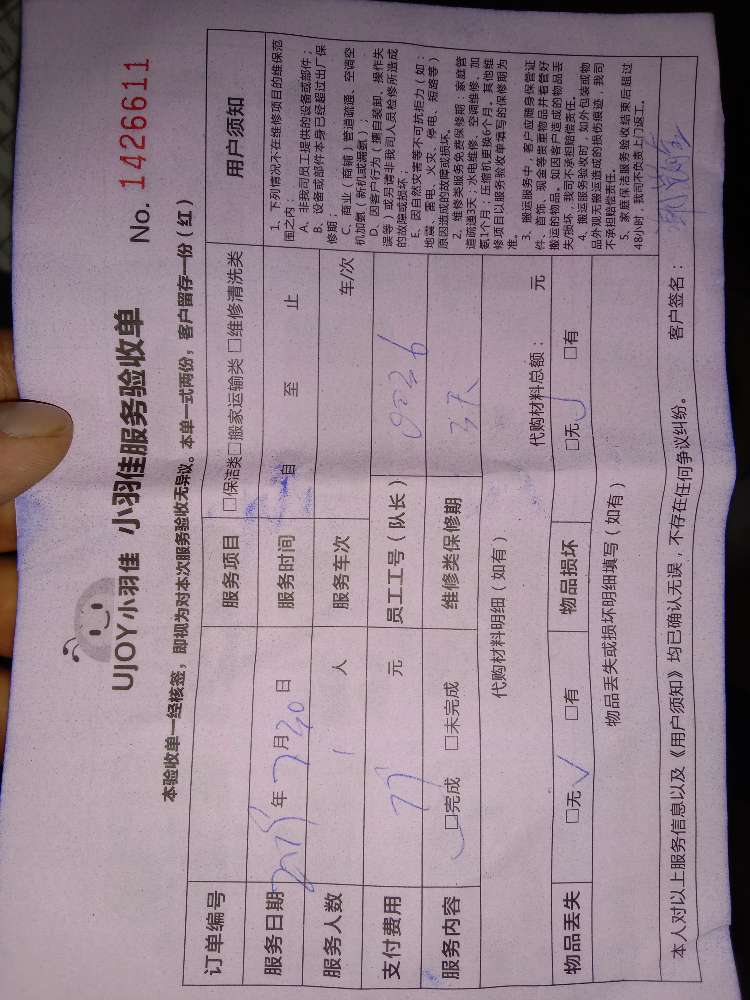 UJOY小羽佳 小羽佳服务验收单
No. 1426611
本验收单一经核签，即视为对本次服务验收无异议。本单一式两份，客户留存一份（红）
订单编号
服务项目 □保洁类□搬家运输类 □维修清洗类
服务日期 年 7 月 30 日
服务时间 自 至 止
服务人数 1 人
服务车次 车/次
支付费用 元
员工工号（队长）
服务内容 □完成 □未完成
维修类保修期 3天
代购材料明细（如有）
代购材料总额： 元
物品丢失 □无 √ □有
物品损坏 □无 √ □有
物品丢失或损坏明细填写（如有）
用户须知
1、下列情况不在维修项目的维保范
围之内；
A、非我司员工提供的设备或部件；
B、设备或部件本身已经超过出厂保
修期；
C、商业（商辅）管道疏通、空调空
机加氨（新机或漏氨）；
D、因客户行为（擅自装卸、操作失
误等）或另请非我司人员检修所造成
的故障或损坏；
E、因自然灾害等不可抗拒力（如：
地震、雷电、火灾、停电、短路等）
原因造成的故障或损坏。
2、维修类服务免费保修期：家庭管
道疏通3天；水电维修、空调维修、加
氨1个月；压缩机更换6个月。其他维
修项目以服务验收单填写的保修期为
准。
3、搬运服务中，客户应随身保管证
件、首饰、现金等贵重物品并看管好
搬运的物品。如因客户造成的物品丢
失/损坏，我司不承担赔偿责任。
4、搬运服务验收时，如外包装或物
品外观无搬运造成的损伤痕迹，我司
不承担赔偿责任。
5、家庭保洁服务验收结束后超过
48小时，我司不负责上门返工。
本人对以上服务信息以及《用户须知》均已确认无误，不存在任何争议纠纷。 客户签名：